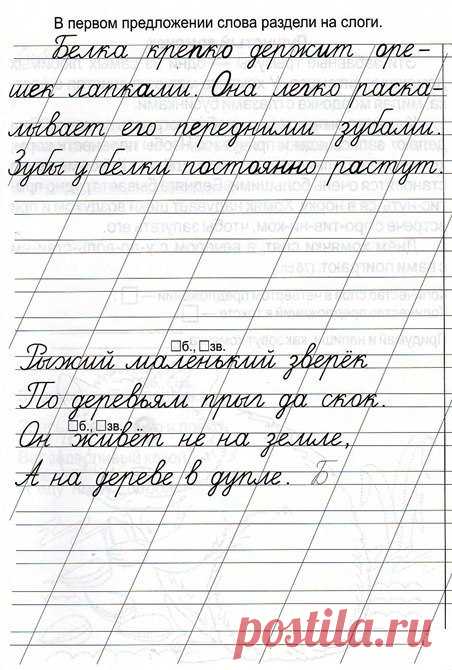 В первом предложении слова раздели на слоги.
Белка крепко держит оре-
шек лапками. Она легко раска-
лывает его передними зубами.
Зубы у белки постоянно растут.
□б., □зв.
Рыжий маленький зверёк
По деревьям прыг да скок.
□б., □зв.
Он живёт не на земле,
А на дереве в дупле. Б
postila.ru